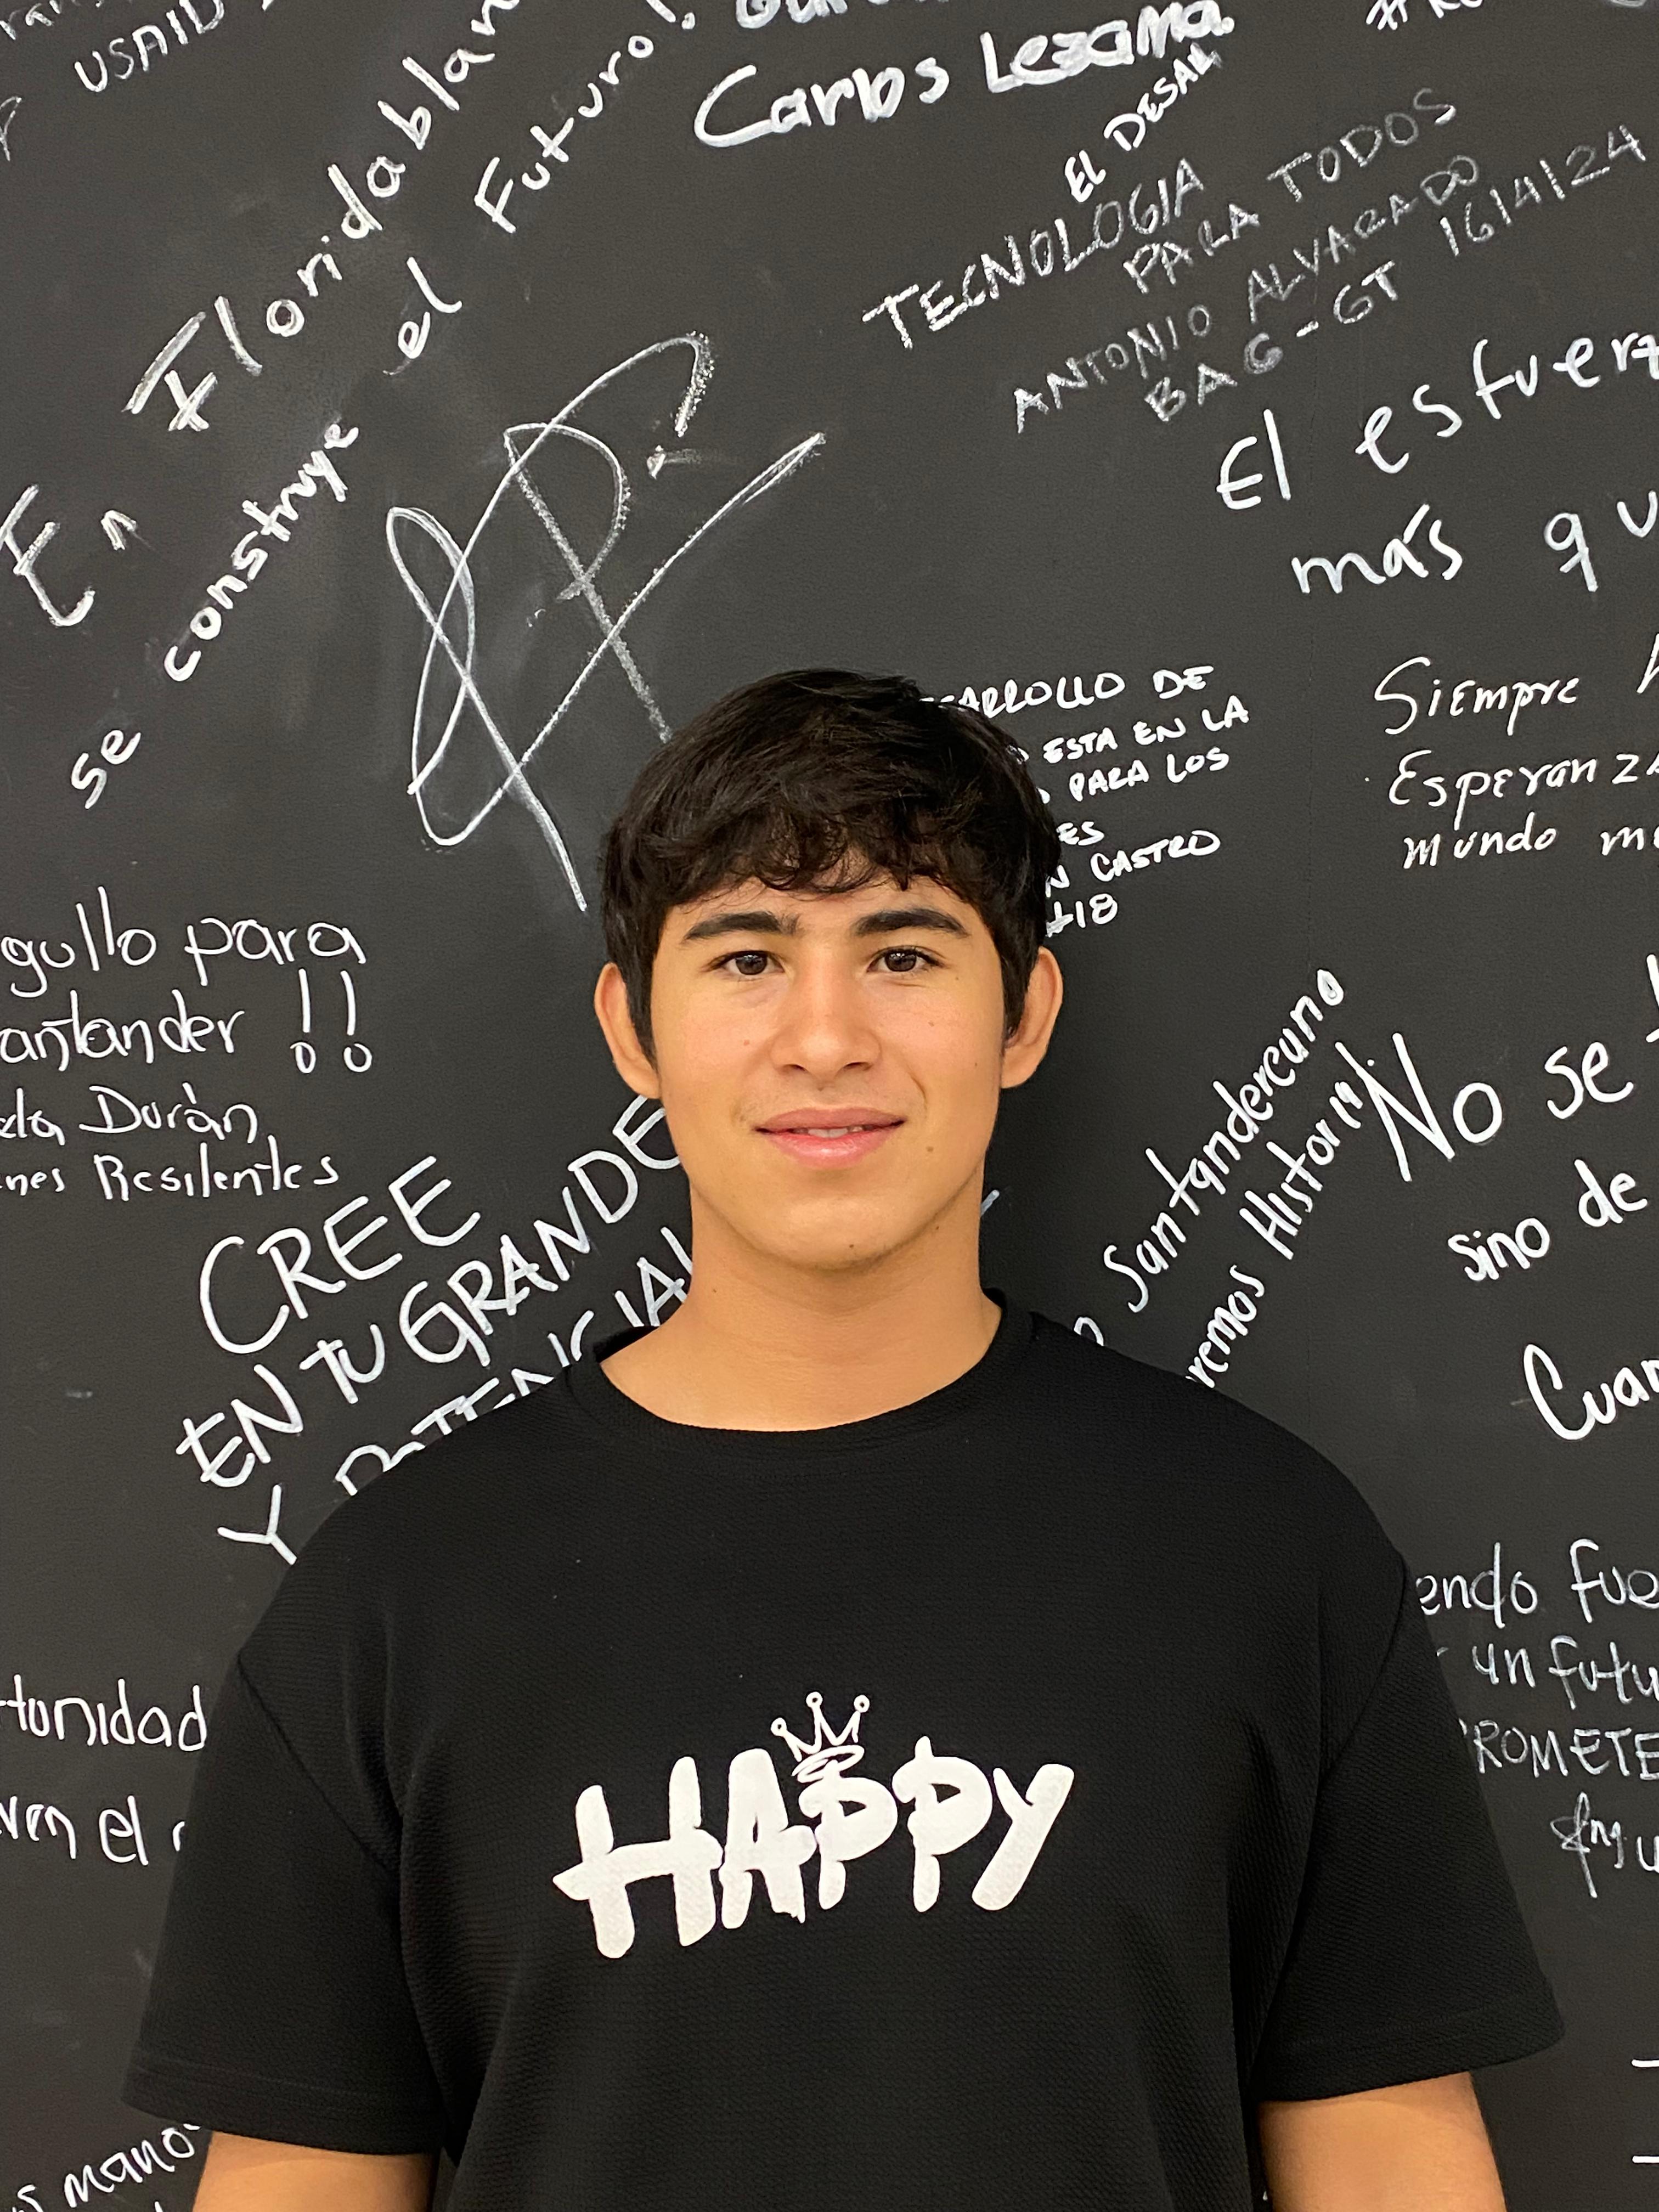 USAID
En Floridablan
se construye el Futuro!
Carlos Lezama.
EL DESAL
TECNOLOGIA
PARA TODOS
ANTONIO ALVARADO
BAG-GT 16/4/24
El esfuerz
más qu
ARROLLO DE
ESTA EN LA
PARA LOS
ES
N CASTRO
+18
Siempre
Esperanza
mundo me
gullo para
antander !!
da Durán
nes Resilentes
CREE
EN TU GRANDE
Y POTENCIAL
Santandereuno
remos Historia
No se
sino de
Cuan
endo fue
un futu
PROMETE
tunidad
ven el
s mano
HAPPY